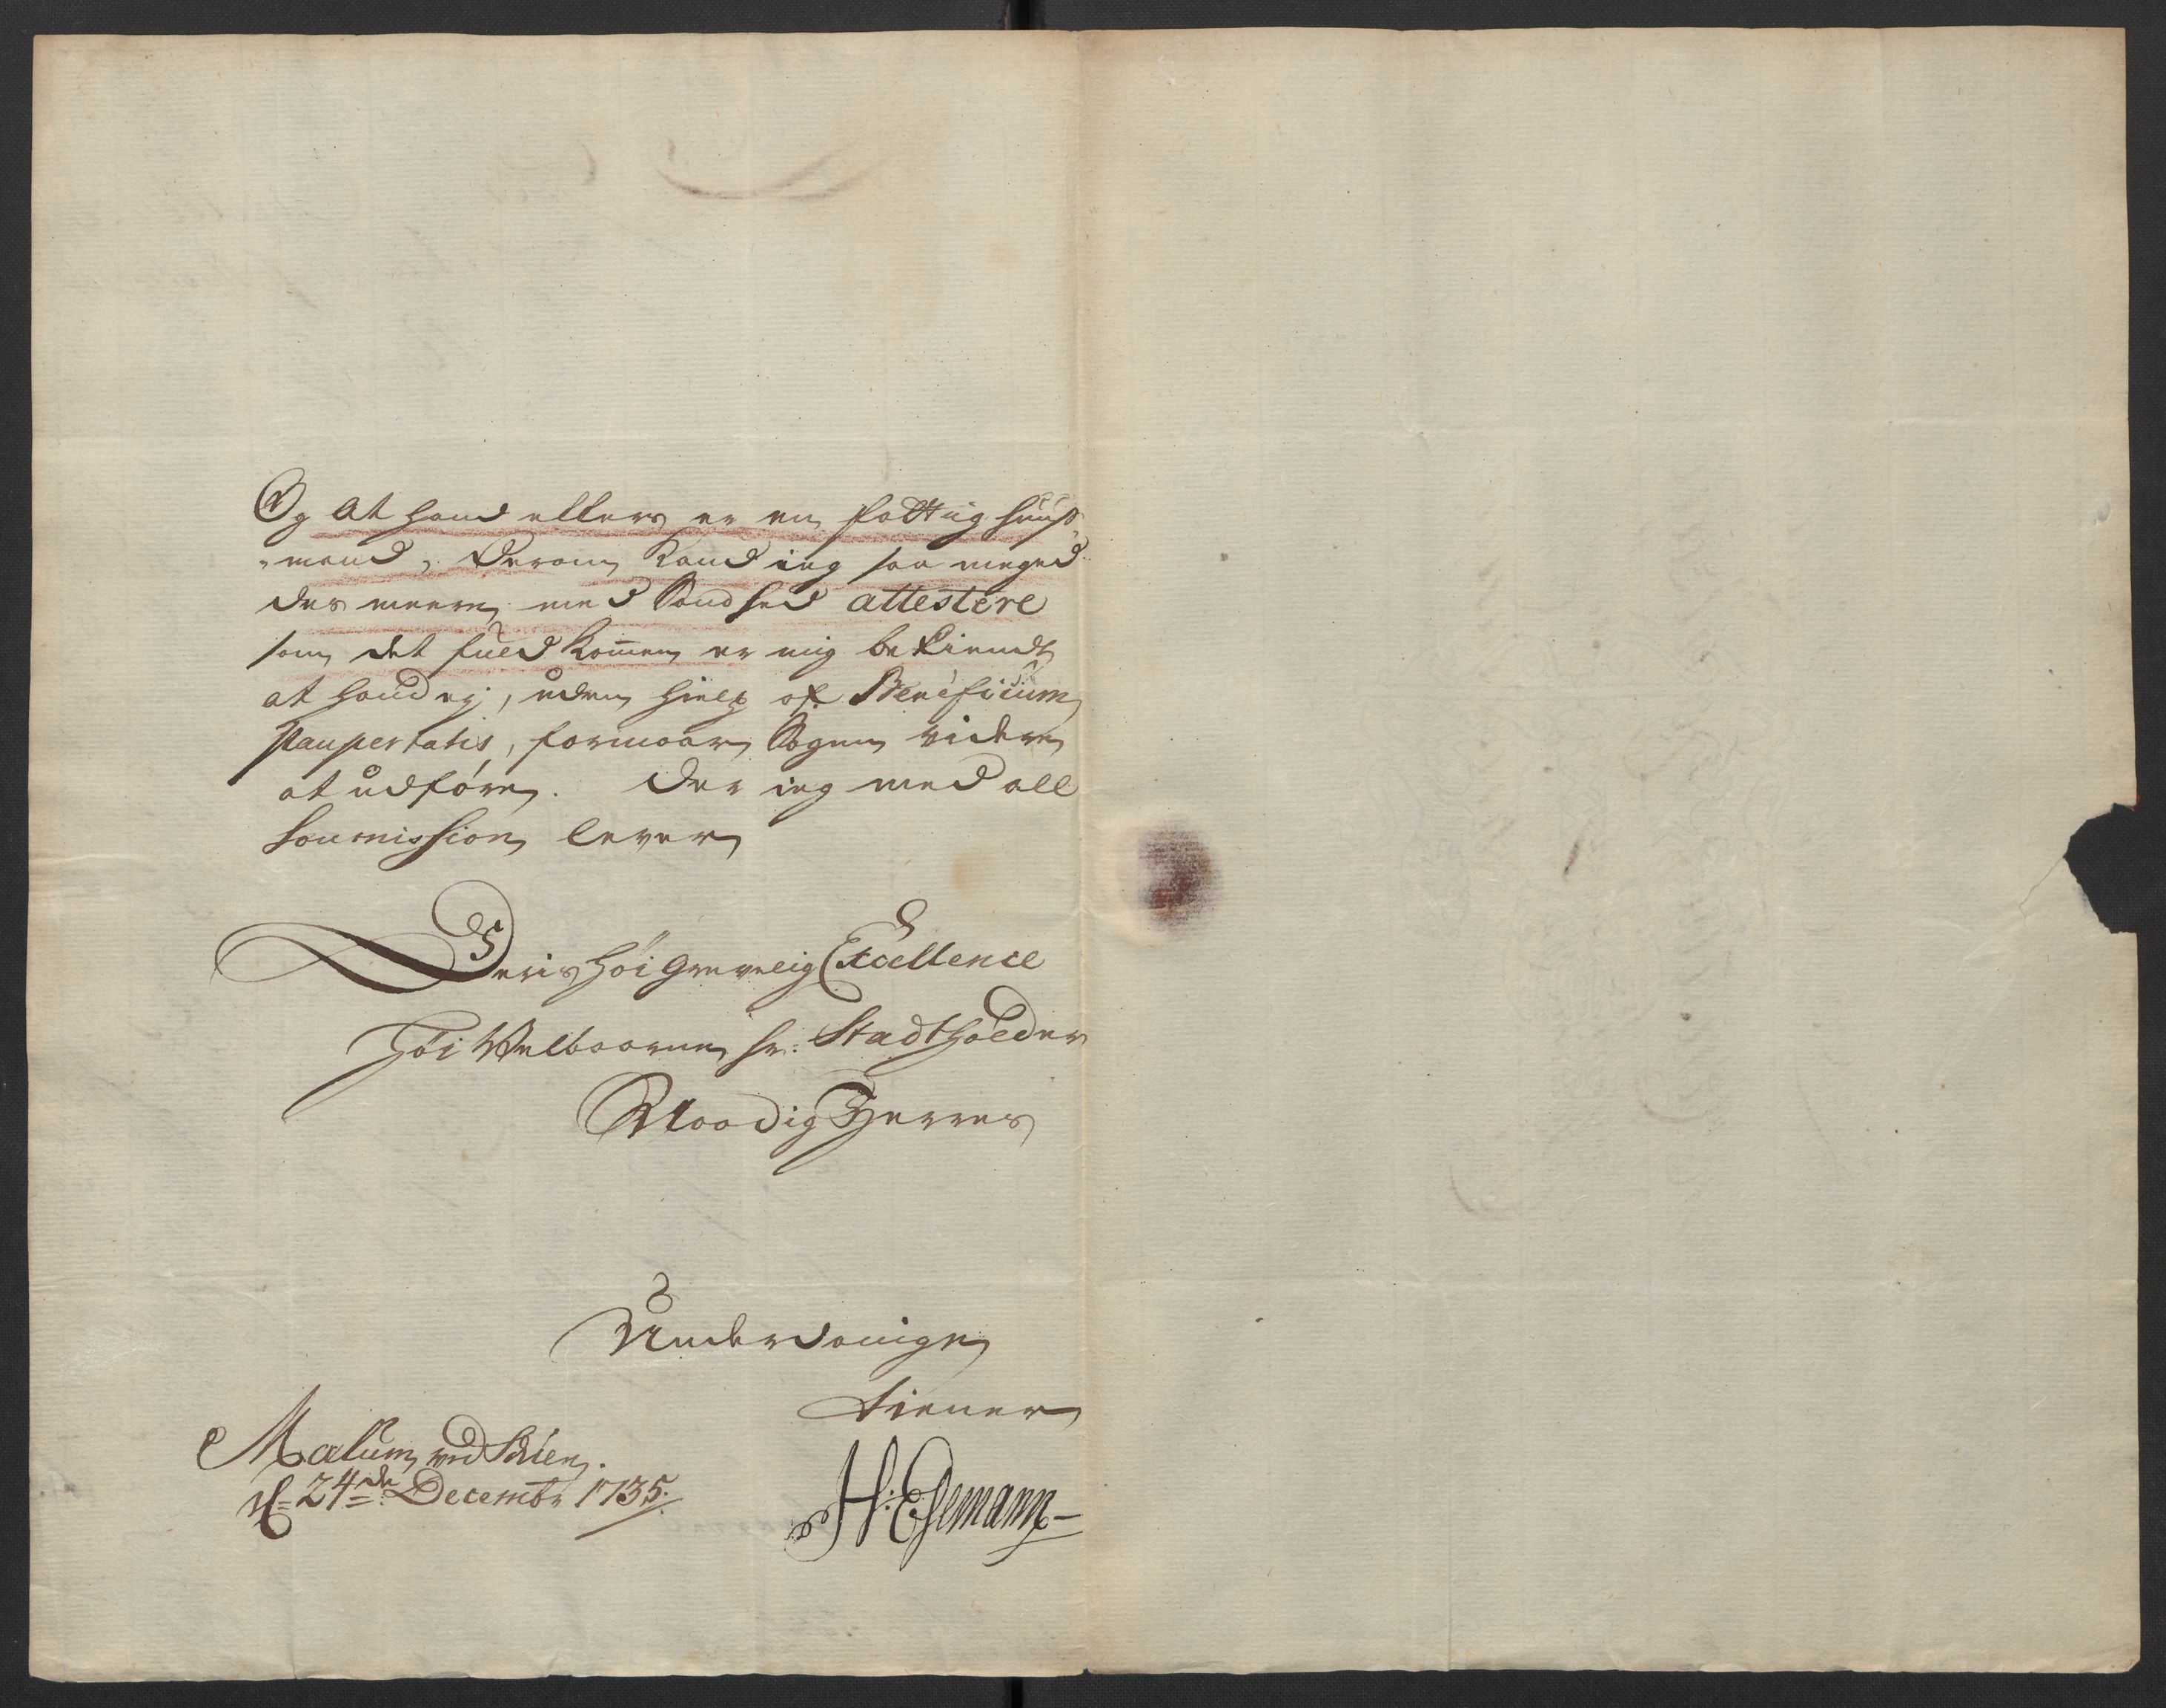 Og at hand ellers er en fattig huus-
-mand, derom kand ieg saa meged
des meere med Sandhed attestere
som det fuldkommen er mig bekiendt
at hand ej, uden hielp af Beneficium
paupertatis, formaar Sagen videre
at udføre. Der ieg med all
soumission lever
Deris Høi Grevelig Excellence
Høi Velbaarne hr: Stadtholder
Naadig Herres
Underdanige
tiener
Mælum ved Schien.
d= 24de Decembr 1735.
H: Esmann